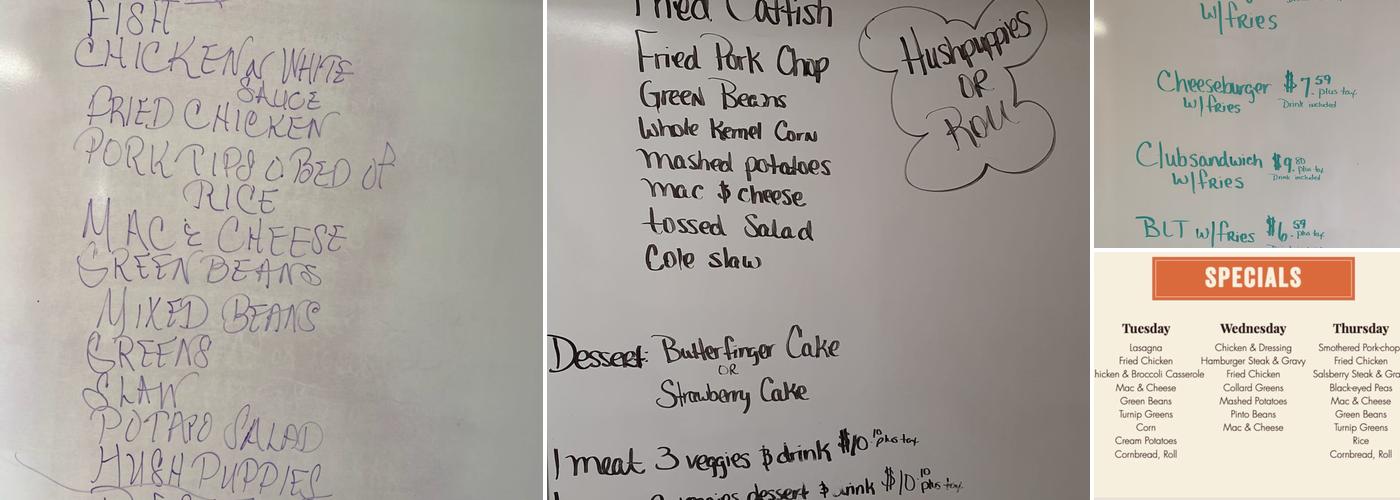 FISH
CHICKEN N WHITE
SAUCE
FRIED CHICKEN
PORK TIPS O BED OF
RICE
MAC & CHEESE
GREEN BEANS
MIXED BEANS
GREENS
SLAW
POTATO SALAD
HUSH PUPPIES
Fried Catfish
Fried Pork Chop
Green Beans
Whole Kernel Corn
Mashed potatoes
Mac $ cheese
tossed Salad
Cole slaw
Hushpuppies
OR
Roll
Dessert: Butterfinger Cake
OR
Strawberry Cake
1 meat 3 veggies $ drink $10.10 plus tax
veggies dessert $ drink $10.10 plus tax
w/fries
Cheeseburger $7.59 plus tax
w/fries Drink included
Clubsandwich $9.80 plus tax
w/fries Drink included
BLT w/fries $6.59 plus tax
SPECIALS
Tuesday
Lasagna
Fried Chicken
hicken & Broccoli Casserole
Mac & Cheese
Green Beans
Turnip Greens
Corn
Cream Potatoes
Cornbread, Roll
Wednesday
Chicken & Dressing
Hamburger Steak & Gravy
Fried Chicken
Collard Greens
Mashed Potatoes
Pinto Beans
Mac & Cheese
Thursday
Smothered Pork-chop
Fried Chicken
Salsberry Steak & Gra
Black-eyed Peas
Mac & Cheese
Green Beans
Turnip Greens
Rice
Cornbread, Roll